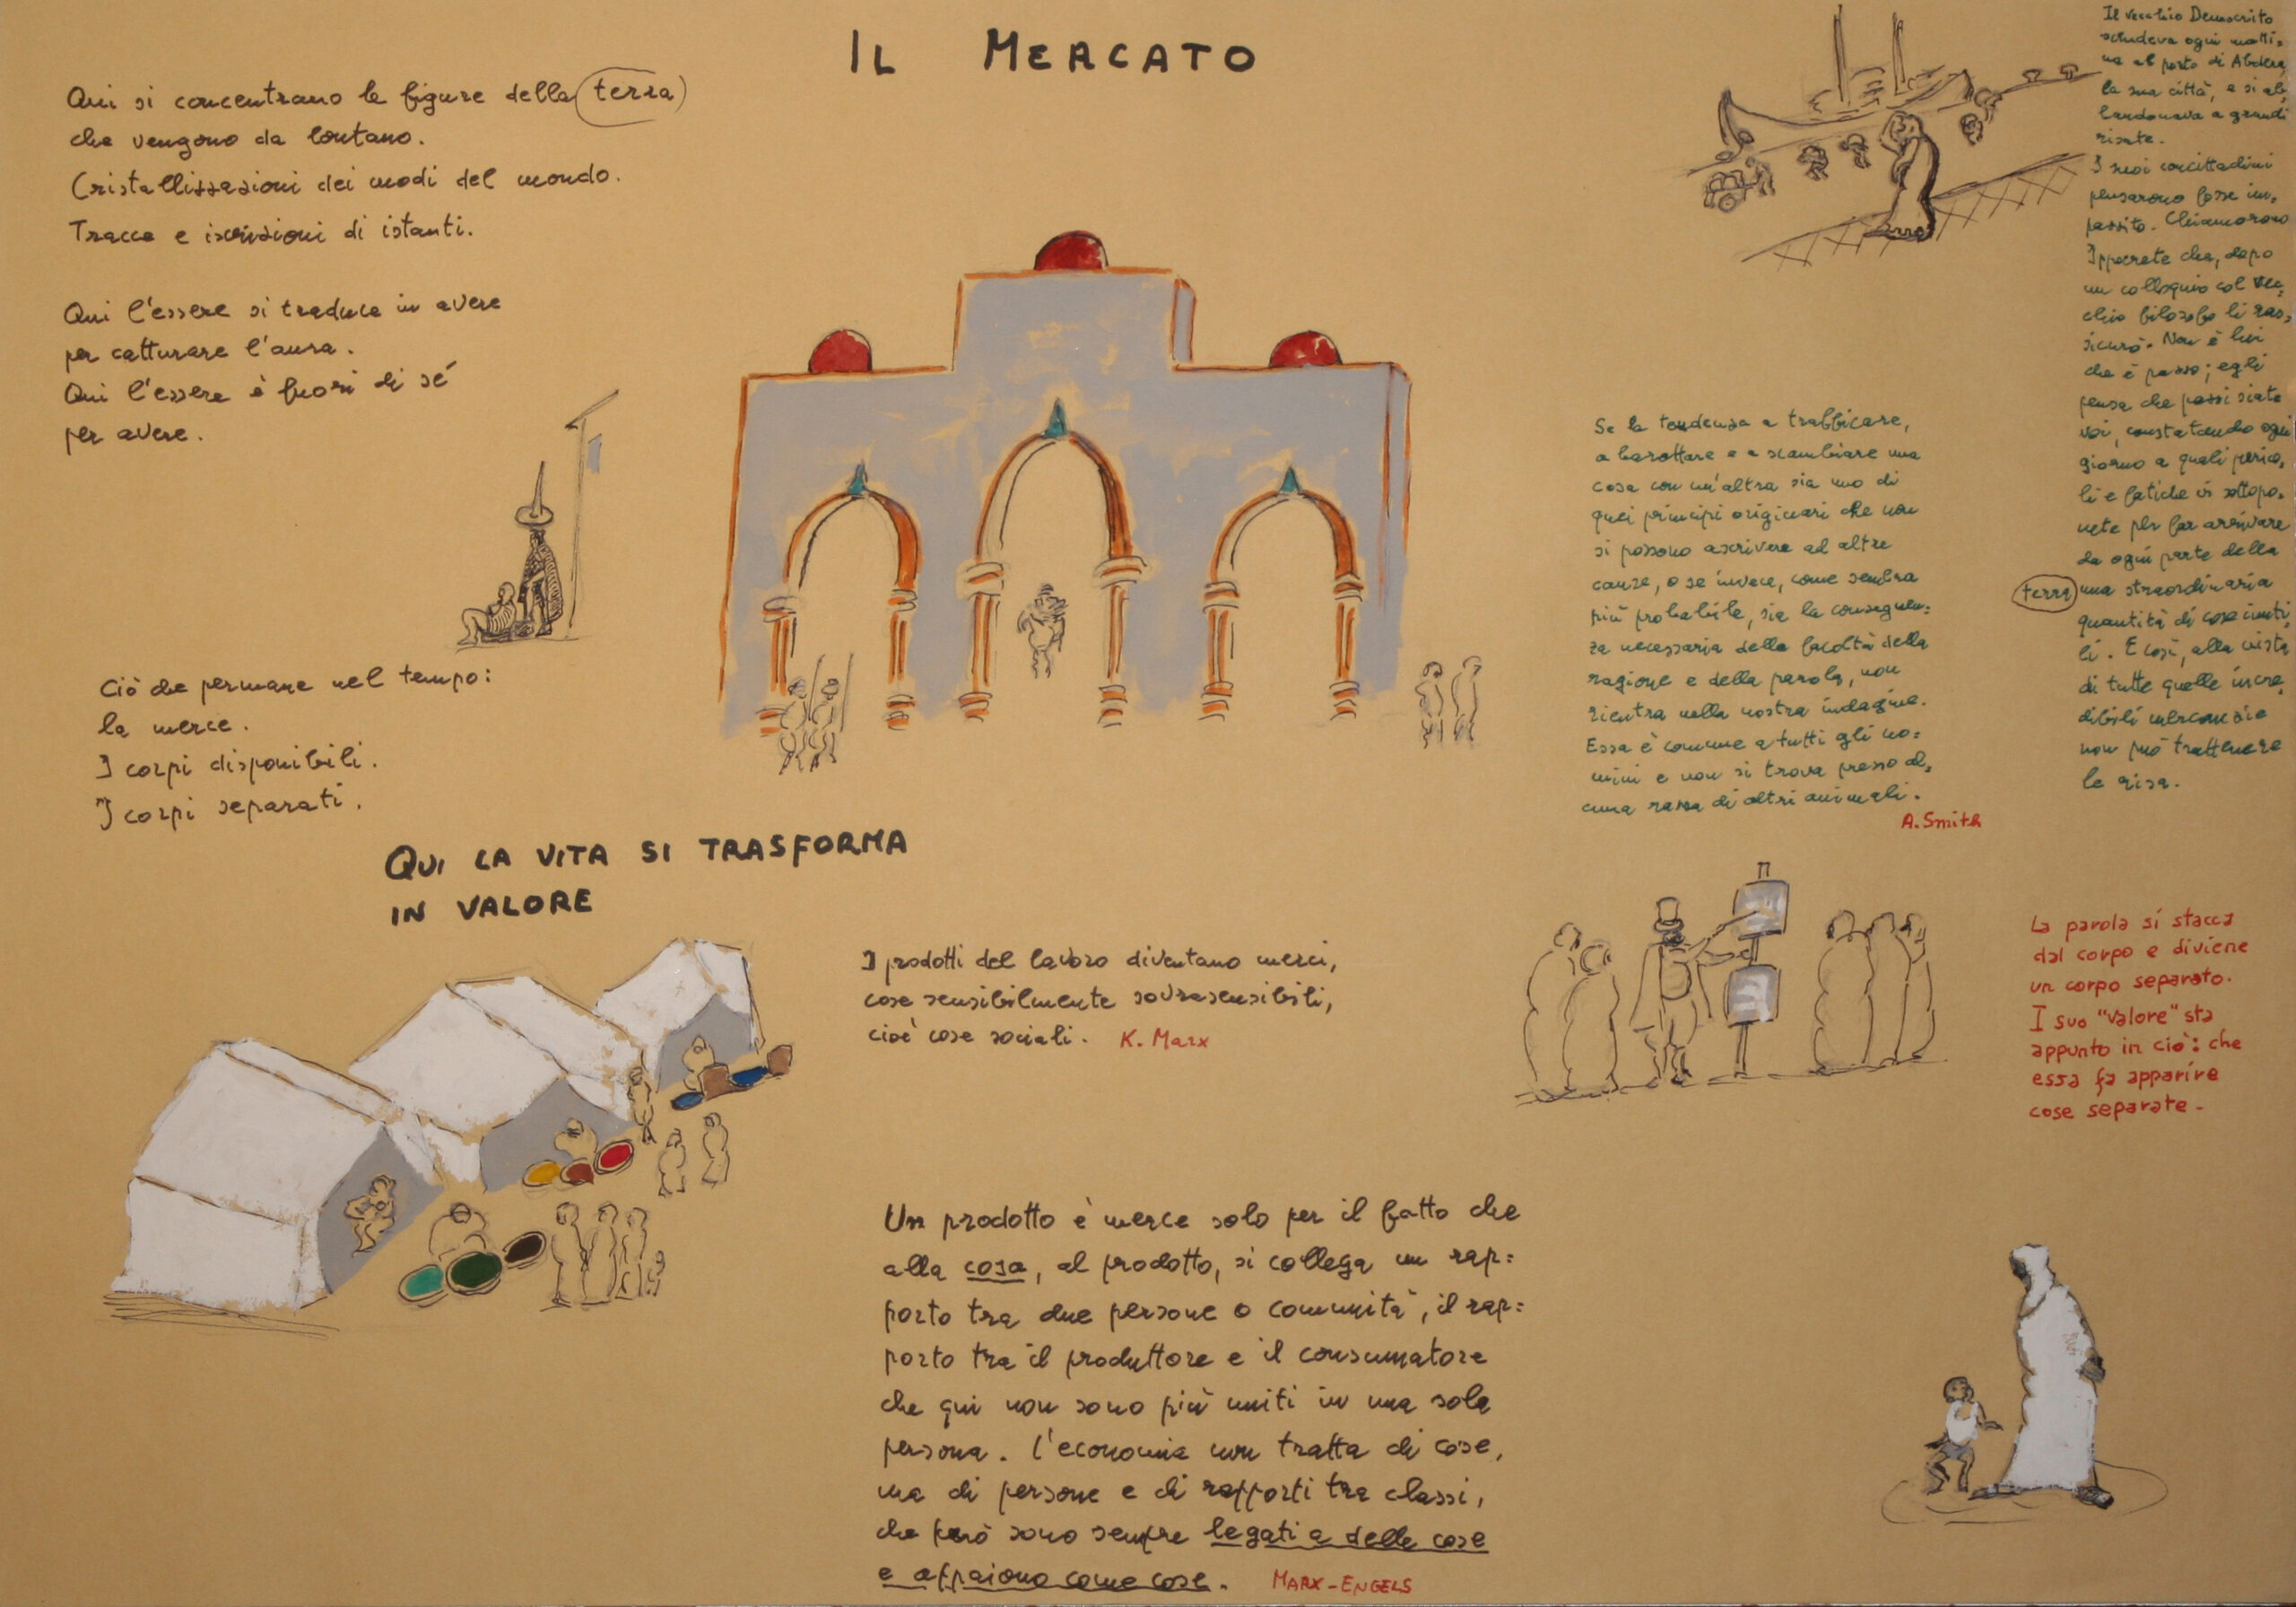 IL MERCATO
Qui si concentrano le figure della terra
che vengono da lontano.
Cristallizzazioni dei modi del mondo.
Tracce e iscrizioni di istanti.
Qui l'essere si traduce in avere
per catturare l'aura.
Qui l'essere è fuori di sé
per avere.
Ciò che permane nel tempo:
la merce.
I corpi disponibili.
I corpi separati.
QUI LA VITA SI TRASFORMA
IN VALORE
I prodotti del lavoro diventano merci,
cose sensibilmente sovrasensibili,
cioè cose sociali. K. Marx
Un prodotto è merce solo per il fatto che
alla cosa, al prodotto, si collega un rap=
porto tra due persone o comunità, il rap=
porto tra il produttore e il consumatore
che qui non sono più uniti in una sola
persona. L'economia non tratta di cose,
ma di persone e di rapporti tra classi,
che però sono sempre legati a delle cose
e appaiono come cose. MARX-ENGELS
Se la tendenza a trafficare,
a barattare e a scambiare una
cosa con un'altra sia uno di
quei principi originari che non
si possono ascrivere ad altre
cause, o se invece, come sembra
più probabile, sia la conseguen=
za necessaria della facoltà della
ragione e della parola, non
rientra nella nostra indagine.
Essa è comune a tutti gli uo=
mini e non si trova presso al=
cuna razza di altri animali.
A. Smith
Il vecchio Democrito
scendeva ogni matti=
na al porto di Abdera,
la sua città, e si ab=
bandonava a grandi
risate.
I suoi concittadini
pensarono fosse im=
pazzito. Chiamarono
Ippocrate che, dopo
un colloquio col vec=
chio filosofo li ras=
sicurò. Non è lui
che è pazzo; egli
pensa che pazzi siate
voi, constatando ogni
giorno a quali perico=
li e fatiche vi sottopo=
nete per far arrivare
da ogni parte della
terra una straordinaria
quantità di cose inuti=
li. E così, alla vista
di tutte quelle incre=
dibili mercanzie
non può trattenere
le risa.
La parola si stacca
dal corpo e diviene
un corpo separato.
I suo "valore" sta
appunto in ciò: che
essa fa apparire
cose separate.